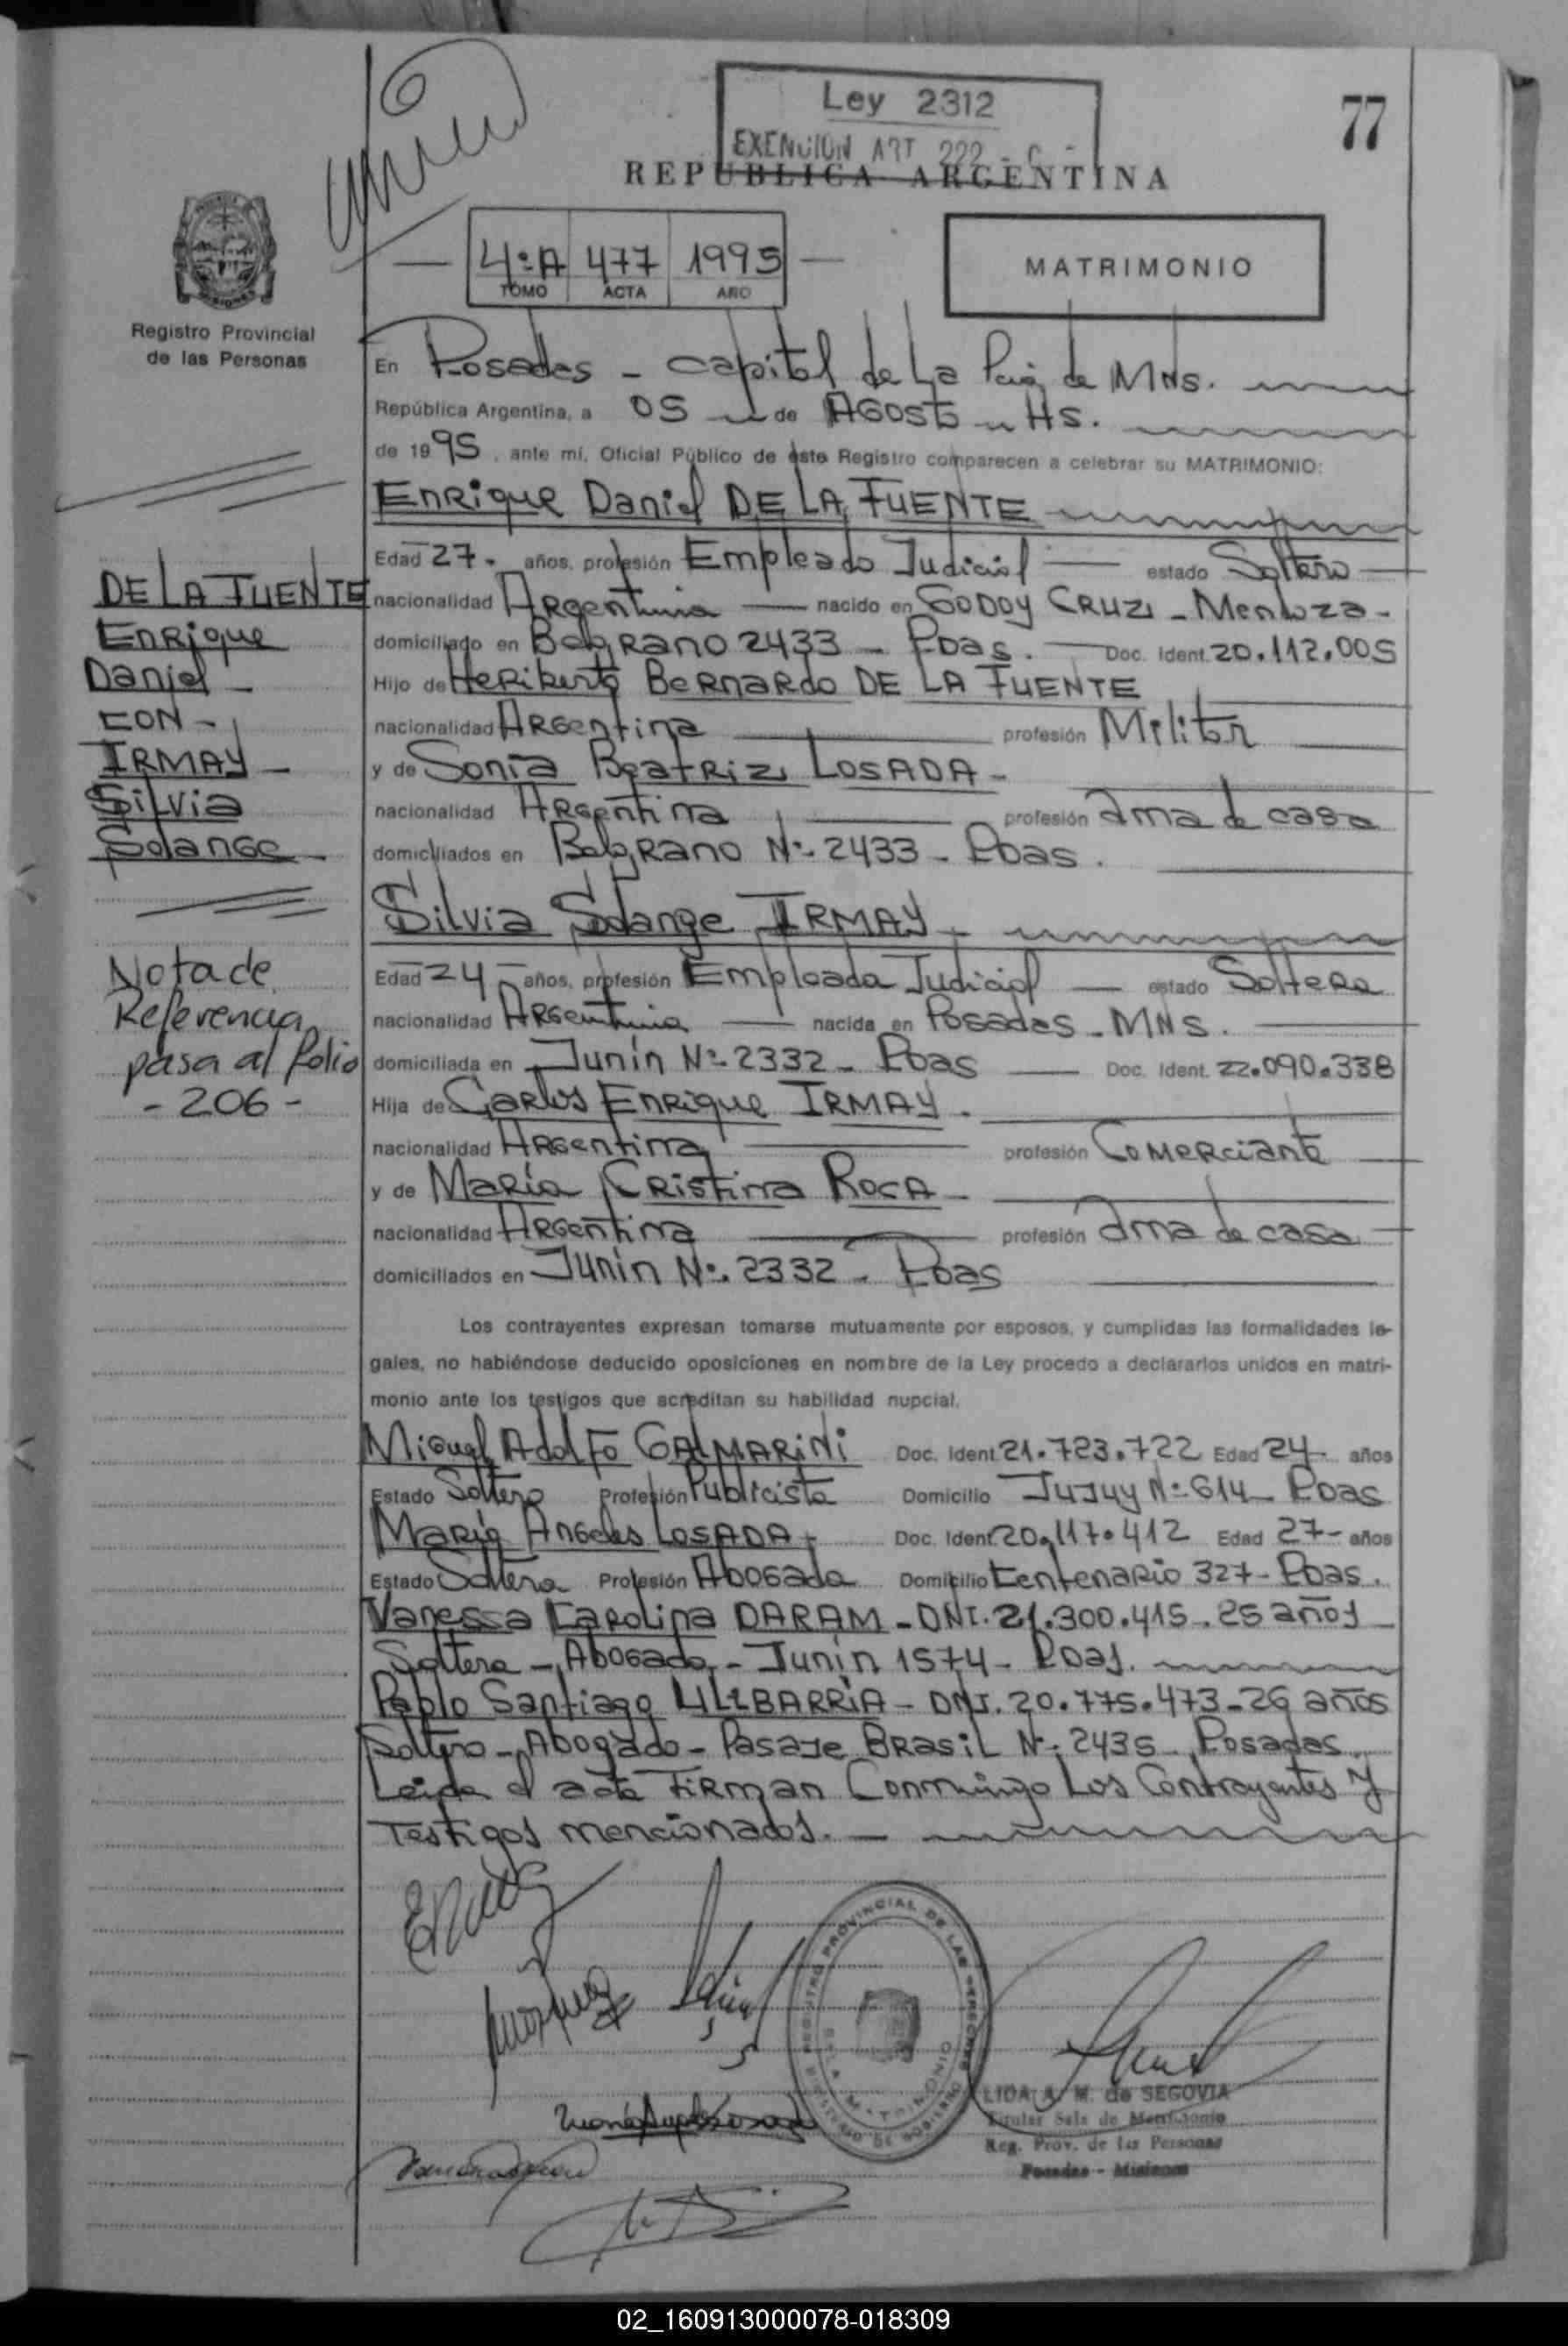 Ley 2312
EXENCION ART 222 - C -
77
REPUBLICA ARGENTINA
4º A 477 1995
TOMO ACTA AÑO
MATRIMONIO
Registro Provincial
de las Personas
En Posadas - capital de La Pcia de MNS.
República Argentina, a 05 de AGOSTO HS.
de 1995, ante mí, Oficial Público de este Registro comparecen a celebrar su MATRIMONIO:
Enrique Daniel DE LA FUENTE
Edad 27 - años, profesión Empleado Judicial estado Soltero
nacionalidad Argentina nacido en GODOY CRUZ - Mendoza -
domiciliado en Belgrano 2433 - Pdas. Doc. Ident. 20.112.005
Hijo de Heriberto Bernardo DE LA FUENTE
nacionalidad Argentina profesión Militar
y de Sonia Beatriz LOSADA -
nacionalidad Argentina profesión ama de casa
domiciliados en Belgrano Nº 2433 - Pdas.
Silvia Solange IRMAY -
Edad 24 - años, profesión Empleada Judicial estado Soltera
nacionalidad Argentina nacida en Posadas - MNS.
domiciliada en Junín Nº 2332 - Pdas Doc. Ident. 22.090.338
Hija de Carlos Enrique IRMAY.
nacionalidad Argentina profesión Comerciante
y de María Cristina ROCA -
nacionalidad Argentina profesión ama de casa
domiciliados en Junín Nº 2332 - Pdas
DE LA FUENTE
Enrique
Daniel -
CON -
IRMAY -
Silvia
Solange -
Nota de
Referencia
pasa al folio
- 206 -
Los contrayentes expresan tomarse mutuamente por esposos, y cumplidas las formalidades le-
gales, no habiéndose deducido oposiciones en nombre de la Ley procedo a declararlos unidos en matri-
monio ante los testigos que acreditan su habilidad nupcial.
Miguel Adolfo GALMARINI Doc. Ident. 21.723.722 Edad 24 - años
Estado Soltero Profesión Publicista Domicilio Jujuy Nº 614 - Pdas
María Angeles LOSADA - Doc. Ident. 20.117.412 Edad 27 - años
Estado Soltera Profesión Abogada Domicilio Centenario 327 - Pdas.
Vanessa Carolina DARAM - DNI. 21.300.415 - 25 años
Soltera - Abogada - Junín 1574 - Pdas.
Pablo Santiago ULIBARRIA - DNI. 20.775.473 - 26 años
Soltero - Abogado - Pasaje Brasil Nº 2435 - Posadas.
Leida el acta Firman Conmigo Los Contrayentes y
Testigos mencionados. -
REGISTRO PROVINCIAL DE LAS PERSONAS
SALA MATRIMONIO
MINISTERIO DE GOBIERNO
LIDA A. M. de SEGOVIA
Titular Sala de Matrimonio
Reg. Prov. de las Personas
Posadas - Misiones
02_160913000078-018309